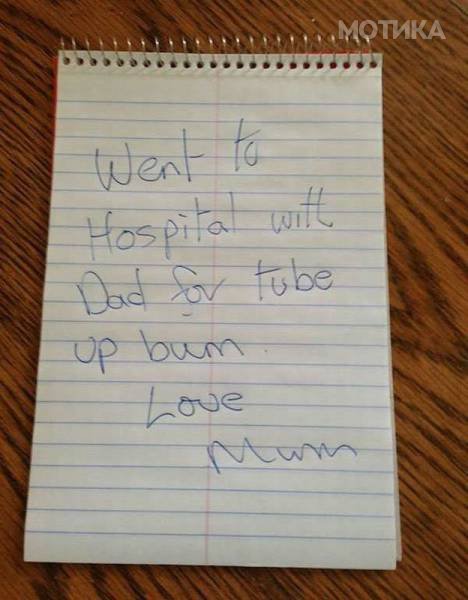 МОТИКА
Went to
Hospital with
Dad for tube
up bum.
Love
Mum